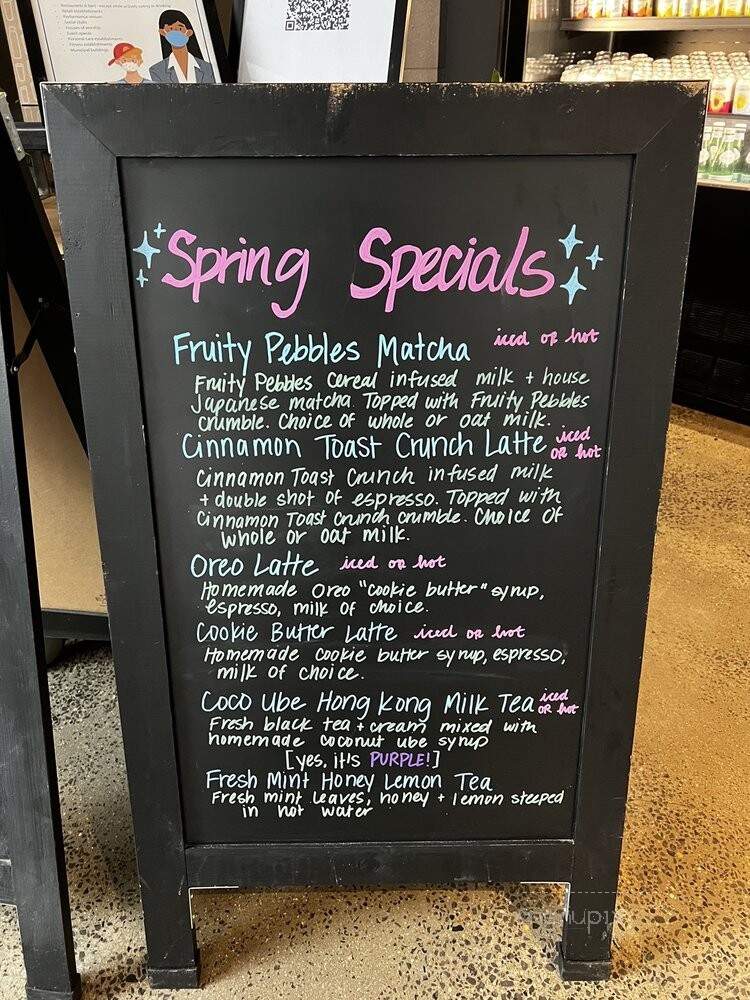 Social clubs
Houses of worship
Event spaces
Personal care establishments
Fitness establishments
Municipal buildings
Spring Specials
Fruity Pebbles Matcha iced or hot
Fruity Pebbles Cereal infused milk + house
Japanese matcha. Topped with Fruity Pebbles
crumble. Choice of whole or oat milk.
Cinnamon Toast Crunch Latte iced
or hot
Cinnamon Toast Crunch infused milk
+ double shot of espresso. Topped with
Cinnamon Toast Crunch crumble. Choice of
whole or oat milk.
Oreo Latte iced or hot
Homemade Oreo "cookie butter" syrup,
espresso, milk of choice.
Cookie Butter Latte iced or hot
Homemade cookie butter syrup, espresso,
milk of choice.
Coco Ube Hong Kong Milk Tea iced
or hot
Fresh black tea + cream mixed with
homemade coconut ube syrup
[yes, it's PURPLE!]
Fresh Mint Honey Lemon Tea
Fresh mint leaves, honey + lemon steeped
in hot water
menupix